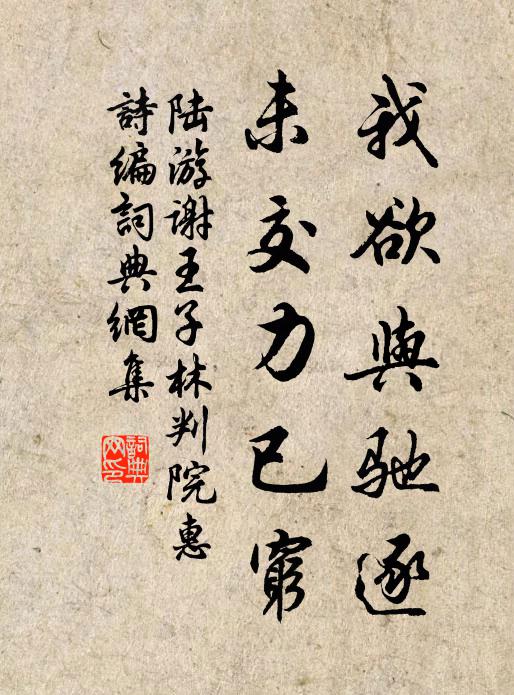 我欲與馳逐
未交力已窮
陆游谢王子林判院惠
詩編詞典網集
詞典
网印